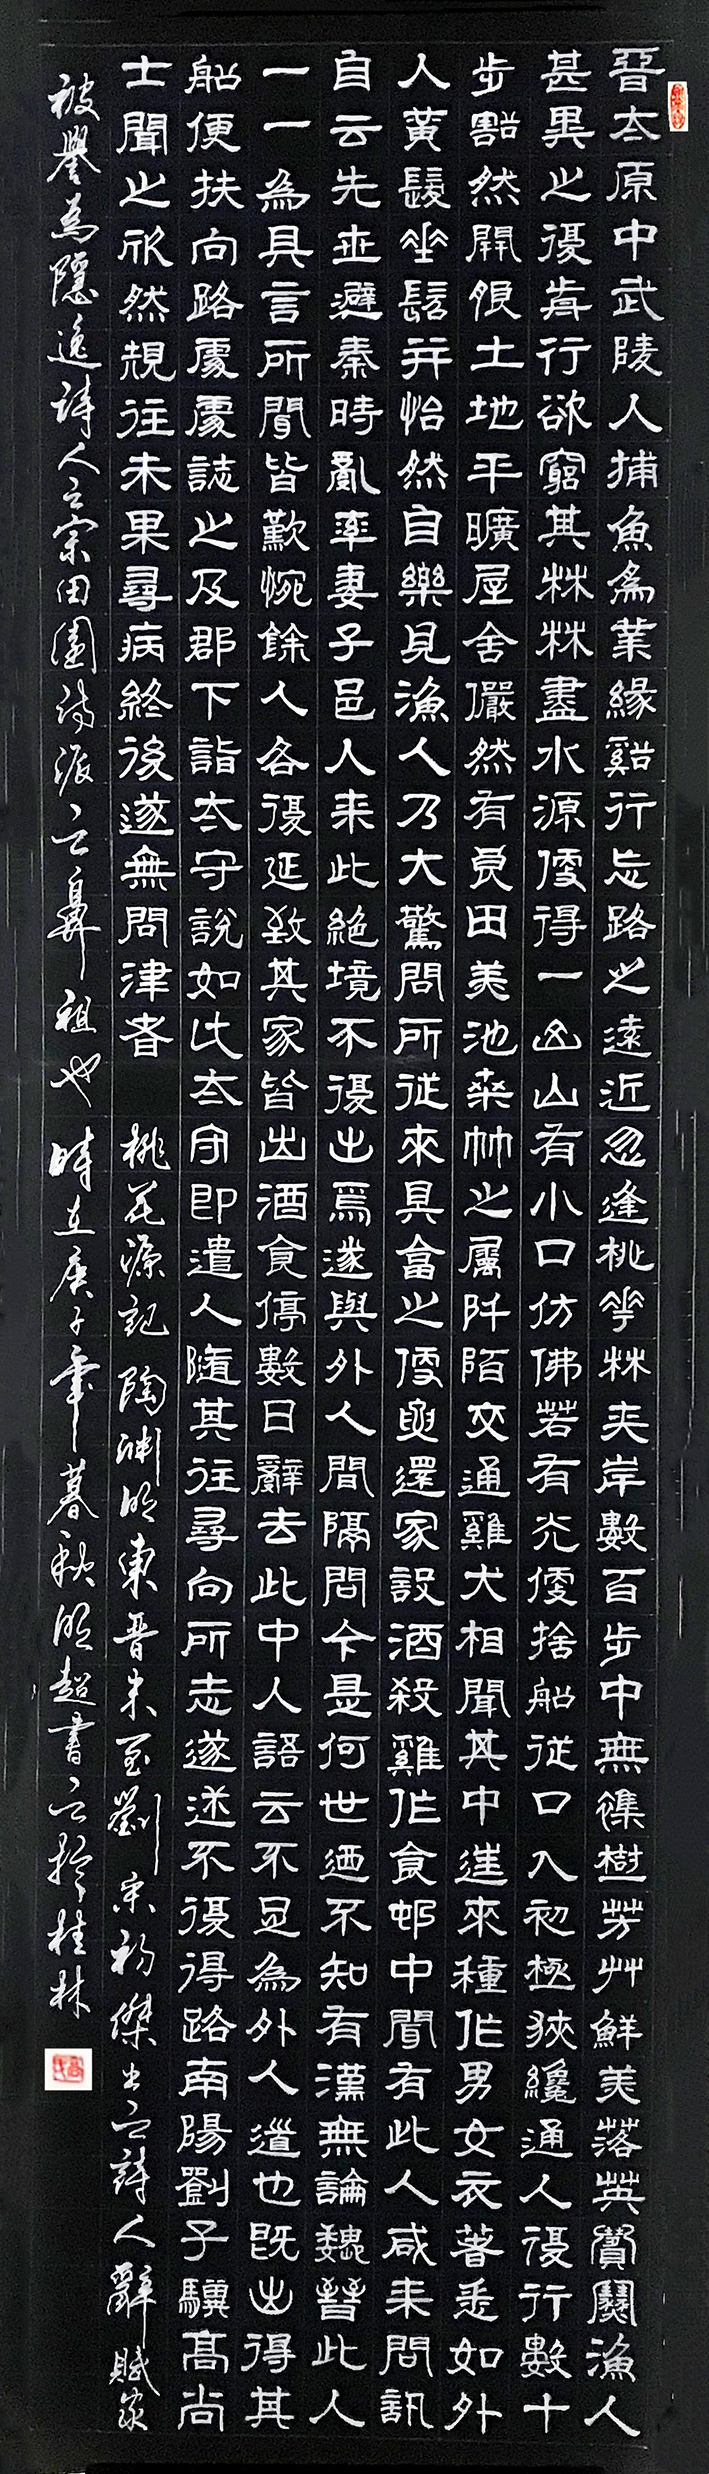 晉太原中武陵人捕魚為業緣谿行忘路之遠近忽逢桃華林夾岸數百步中無雜樹芳艸鮮美落英繽紛漁人
甚異之復歬行欲窮其林林盡水源便得一山山有小口仿佛若有光便捨船從口入初極狹纔通人復行數十
步豁然開朗土地平曠屋舍儼然有良田美池桑竹之屬阡陌交通雞犬相聞其中往來種作男女衣著悉如外
人黃髮垂髫并怡然自樂見漁人乃大驚問所從來具答之便要還家設酒殺雞作食邨中聞有此人咸來問訊
自云先世避秦時亂率妻子邑人來此絕境不復出焉遂與外人間隔問今是何世迺不知有漢無論魏晉此人
一一為具言所聞皆歎惋餘人各復延致其家皆出酒食停數日辭去此中人語云不足為外人道也既出得其
船便扶向路處處誌之及郡下詣太守說如此太守即遣人隨其往尋向所志遂迷不復得路南陽劉子驥高尚
士聞之欣然規往未果尋病終後遂無問津者 桃花源記 陶淵明東晉末至劉宋初傑出之詩人辭賦家
被譽為隱逸詩人之宗田園詩派之鼻祖也 時在庚子年暮秋明超書之於桂林